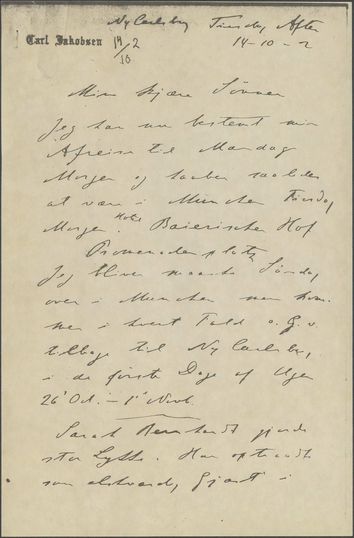 Ny Carlsberg Tirsdag Aften
Carl Jakobsen 14/10 2 14-10-2
Min kjære Sønner
Jeg har nu bestemt min
Afreise til Mandag
Morgen og haaber saaledes
at være i München Tirsdag
Morgen. Hotel Baierischer Hof
Promenadenplatz
Jeg bliver maaske Søndag
over i München men kom-
mer i hvert Fald o. G. v.
tilbage til Ny Carlsberg,
i de første Dage af Ugen
26' Oct. - 1' Novb.
Sarah Bernhardt gjorde
stor Lykke. Hun optraadte
som